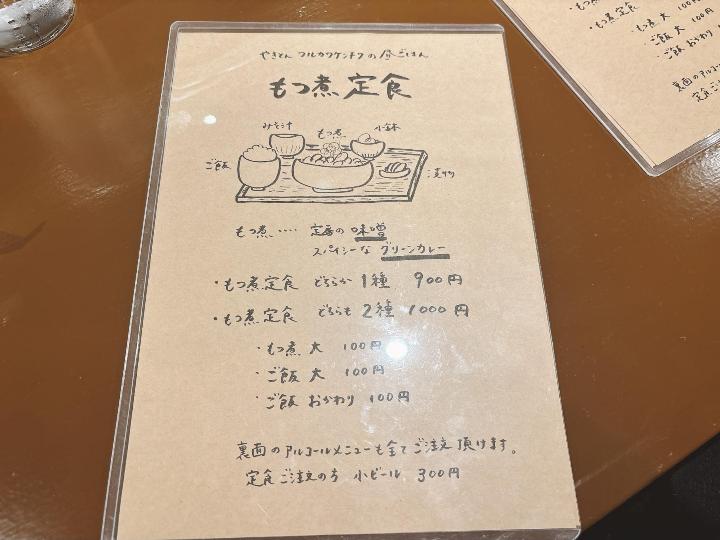 やきとん フルカワケンチクの昼ごはん
もつ煮定食
みそ汁
もつ煮
小鉢
ご飯
漬物
もつ煮‥‥ 定番の味噌
スパイシーなグリーンカレー
・もつ煮定食 どちらか1種 900円
・もつ煮定食 どちらも2種 1000円
・もつ煮 大 100円
・ご飯 大 100円
・ご飯 おかわり 100円
裏面のアルコールメニューも全てご注文頂けます。
定食ご注文の方 小ビール 300円
・もつ煮定食
・もつ煮 大 100円
・ご飯 大 100円
・ご飯 おかわり
裏面のアルコール
定食ご注